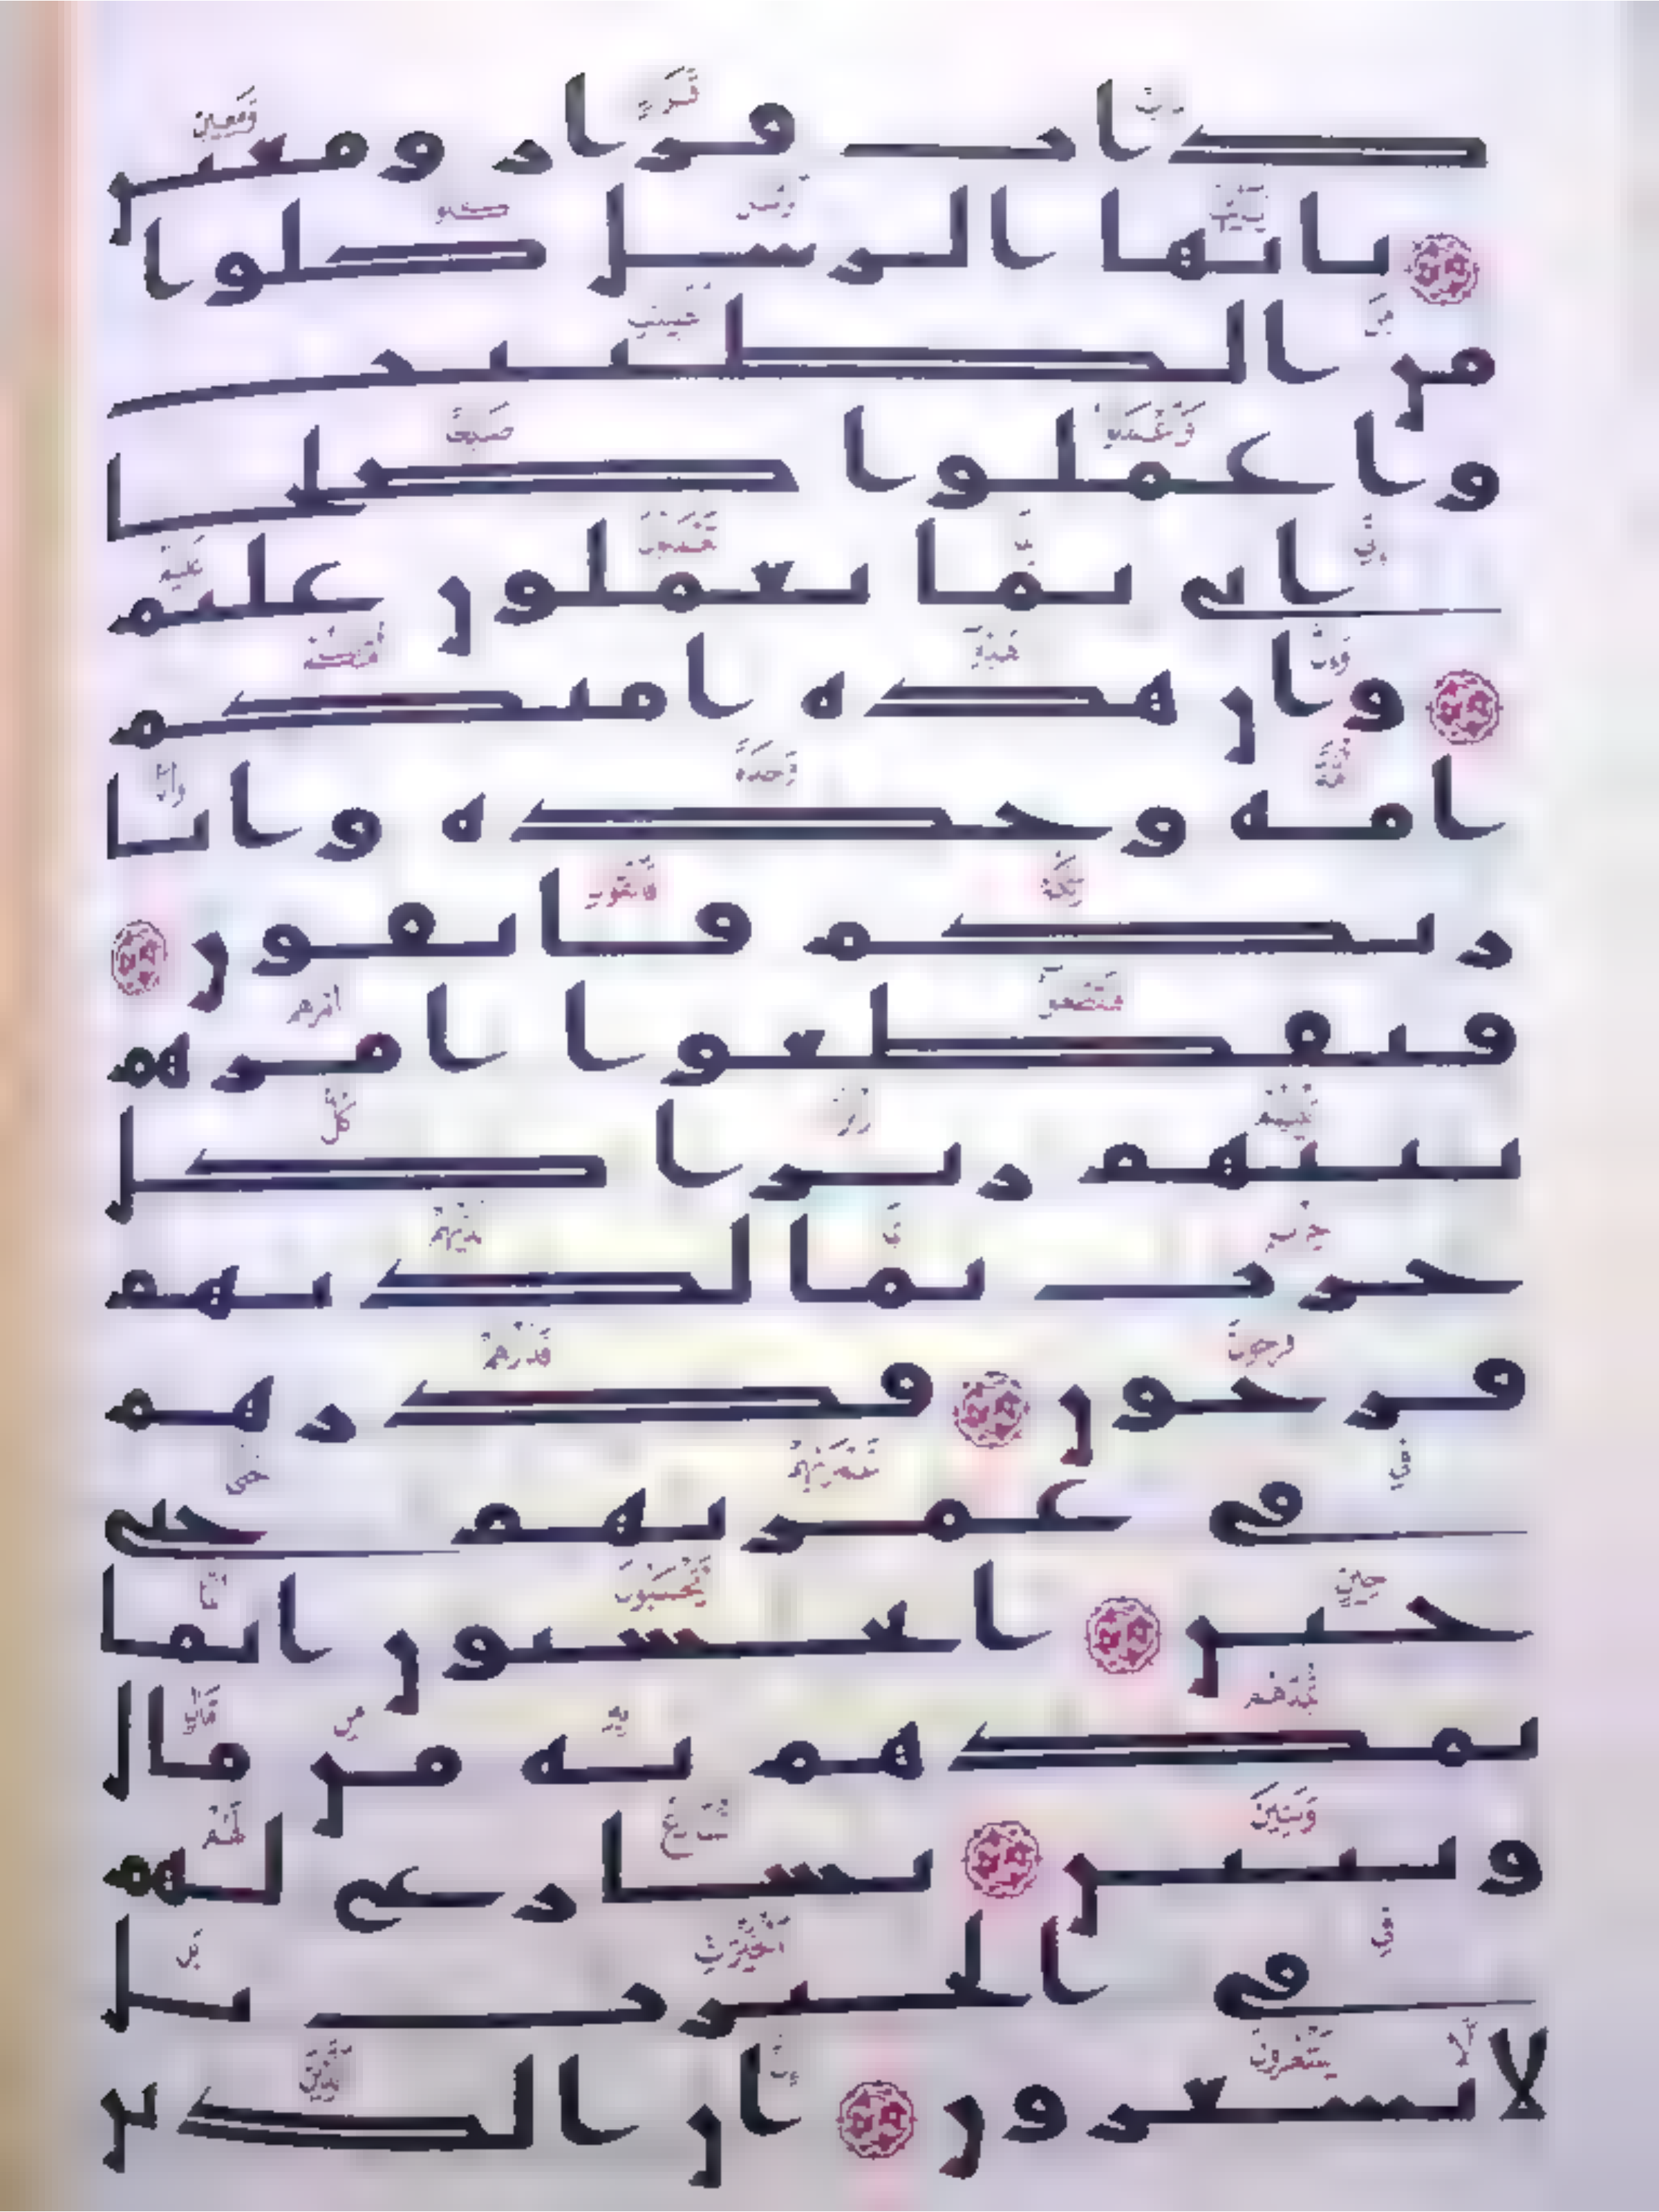 ذات قرار ومعين
يايها الرسل كلوا
من الطيبت
واعملوا صلحا
انى بما تعملون عليم
وان هذه امتكم
امة وحدة وانا
ربكم فاتقون
فتقطعوا امرهم
بينهم زبرا كل
حزب بما لديهم
فرحون فذرهم
فى غمرتهم حتى
حين ايحسبون انما
نمدهم به من مال
وبنين نسارع لهم
فى الخيرت بل
لا يشعرون ان الذين